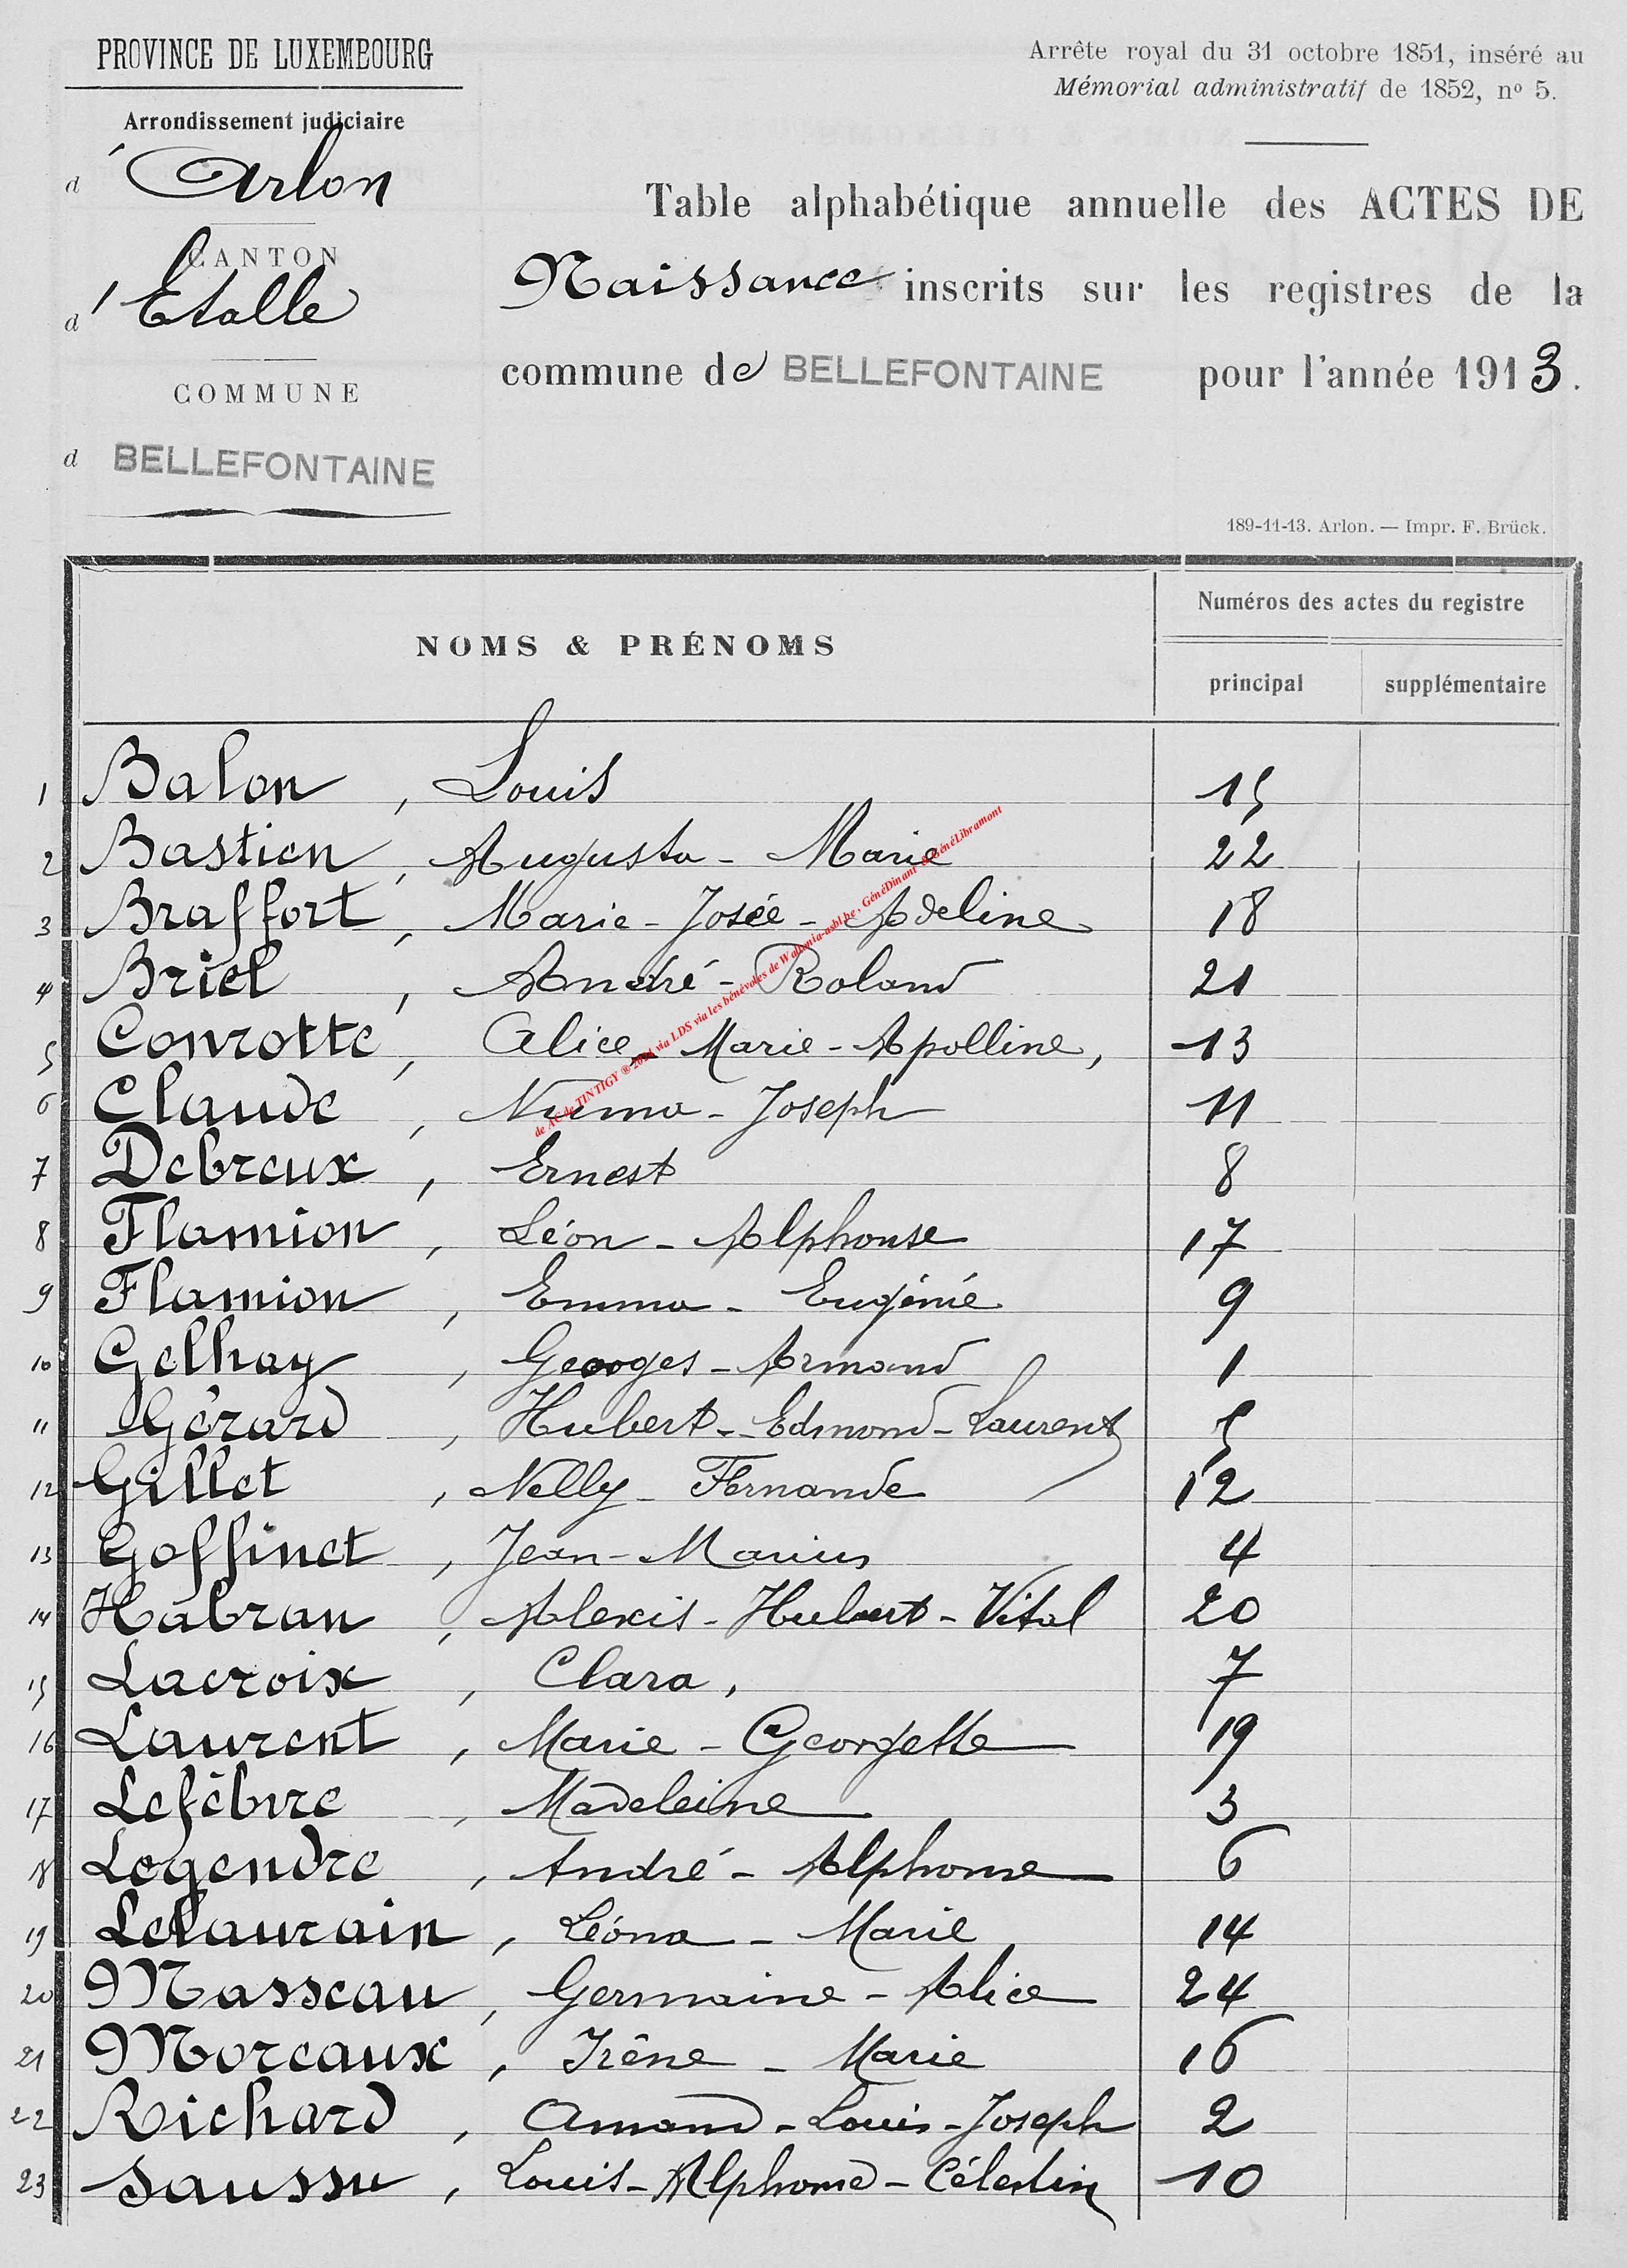 PROVINCE DE LUXEMBOURG
Arrondissement judiciaire
d'Arlon
CANTON
d'Etalle
COMMUNE
d BELLEFONTAINE
Arrête royal du 31 octobre 1851, inséré au
Mémorial administratif de 1852, nº 5.
Table alphabétique annuelle des ACTES DE
Naissance inscrits sur les registres de la
commune de BELLEFONTAINE pour l'année 1913.
189-11-13. Arlon. — Impr. F. Brück.
NOMS & PRÉNOMS
Numéros des actes du registre
principal supplémentaire
1 Balon, Louis 15
2 Bastien, Augusta - Marie 22
3 Braffort, Marie - Josée - Adeline 18
4 Briel, André - Roland 21
5 Conrotte, Alice - Marie - Apolline, 13
6 Claude, Numa - Joseph 11
7 Debreux, Ernest 8
8 Flamion, Léon - Alphonse 17
9 Flamion, Emma - Eugénie 9
10 Gelhay, Georges - Armand 1
11 Gérard, Hubert - Edmond - Laurent 5
12 Gillet, Nelly - Fernande 12
13 Goffinet, Jean - Marius 4
14 Habran, Alexis - Hubert - Vital 20
15 Lacroix, Clara, 7
16 Laurent, Marie - Georgette 19
17 Lefèbvre, Madeleine 3
18 Legendre, André - Alphonse 6
19 Lelaurain, Léona - Marie 14
20 Masseau, Germaine - Alice 24
21 Moreaux, Irène - Marie 16
22 Richard, Amand - Louis - Joseph 2
23 Saussu, Louis - Alphonse - Célestin 10
de AC de TINTIGY ® 2024 via LDS via les bénévoles de Wallonia-asbl.be, GénéDinant et GénéLibramont